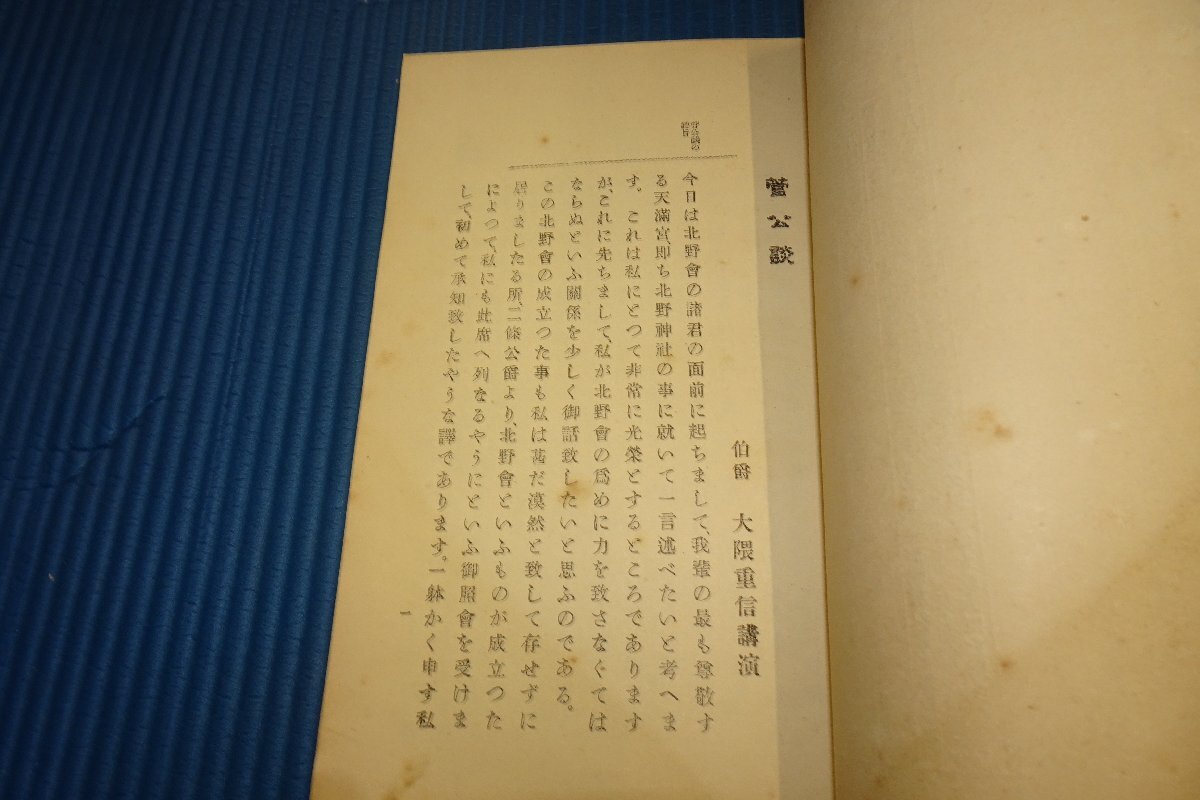 菅公談
伯爵 大隈重信講演
今日は北野會の諸君の面前に起ちまして、我輩の最も尊敬す
る天滿宮、即ち北野神社の事に就いて一言述べたいと考へま
す。これは私にとつて非常に光榮とするところであります
が、これに先ちまして、私が北野會の爲めに力を致さなくては
ならぬといふ關係を少しく御話致したいと思ふのである。
この北野會の成立つた事も私は甚だ漠然と致して存せずに
居りましたる所、二條公爵より、北野會といふものが成立つた
によつて、私にも此席へ列なるやうにといふ御照會を受けま
して、初めて承知致したやうな譯であります。一躰かく申す私
一